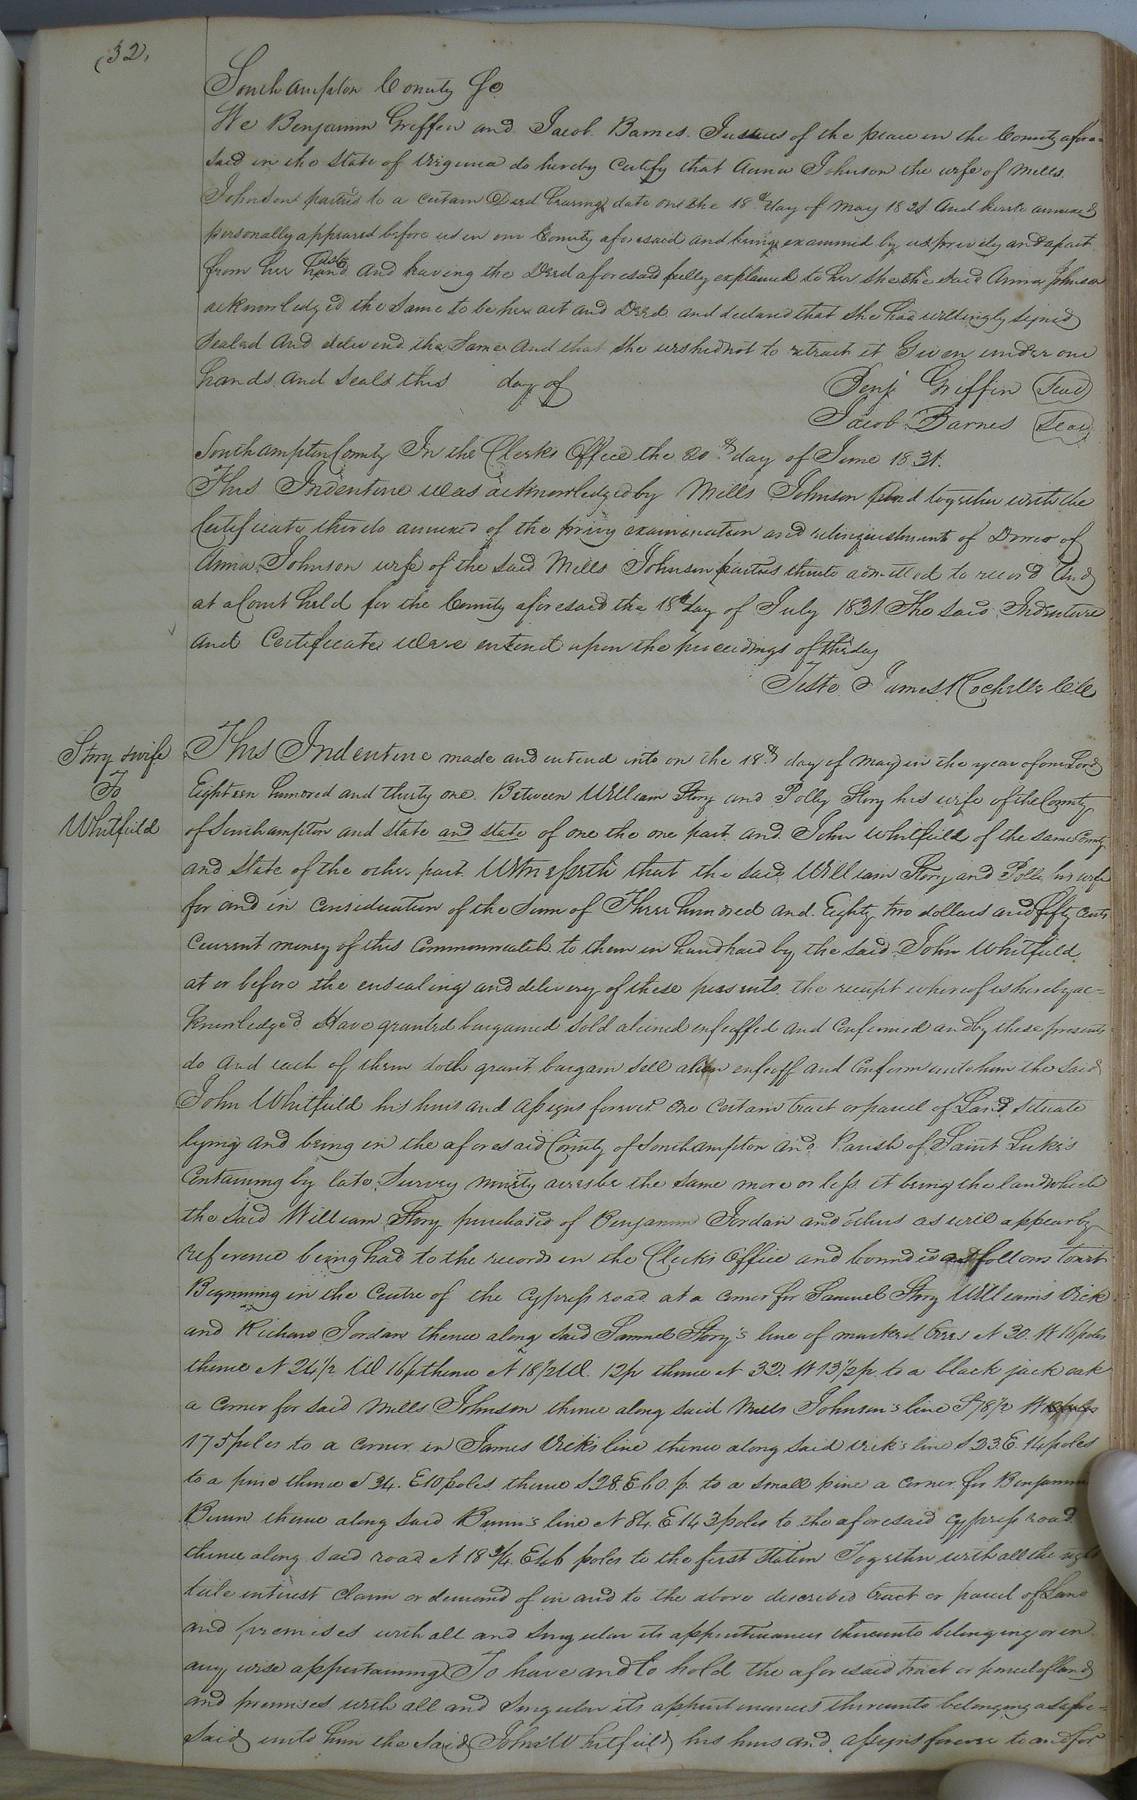 (32,
Southampton County Sc
We Benjamin Griffin and Jacob Barnes Justices of the peace in the County afore=
said in the State of Virginia do hereby Certify that Anna Johnson the wife of Mills
Johnson parties to a certain Deed bearing date on the 18th day of May 1831 And hereto annexed
personally appeared before us in our County aforesaid and being examined by us privily and apart
from her husband And having the Deed aforesaid fully explained to her she the said Anna Johnson
acknowledged the Same to be her act and Deed and declared that she had willingly signed
Sealed And delivered the Same And that she wished not to retract it Given under our
hands And Seals this day of Benj Griffin Seal
Jacob Barnes Seal
Southampton County In the Clerks Office the 20th day of June 1831.
This Indenture was acknowledged by Mills Johnson And together with the
Certificate thereto annexed of the privy examination and relinquishment of Dower of
Anna Johnson wife of the said Mills Johnson parties thereto admitted to record And
at a Court held for the County aforesaid the 18th day of July 1831 The said Indenture
and Certificate were entered upon the proceedings of the day
Teste James Rochelle Clk
Story & wife
To
Whitfield
This Indenture made and entered into on the 18th day of May in the year of our Lord
Eighteen hundred and thirty one Between William Story and Polly Story his wife of the County
of Southampton and state and state of one the one part and John Whitfield of the same County
and State of the other part Witnesseth that the said William Story and Polly his wife
for and in Consideration of the Sum of Three hundred and Eighty two dollars and fifty Cents
Current money of this Commonwealth to them in hand paid by the said John Whitfield
at or before the ensealing and delivery of these presents the receipt whereof is hereby ac=
knowledged Have granted bargained Sold aliened enfeoffed and Confirmed and by these presents
do and each of them doth grant bargain sell alien enfeoff and Confirm unto him the Said
John Whitfield his heirs and assigns forever One Certain tract or parcel of Land Situate
lying and being in the aforesaid County of Southampton and Parish of Saint Luke's
Containing by late Survey ninety acres be the same more or less it being the land which
the said William Story purchased of Benjamin Jordan and others as will appear by
reference being had to the records in the Clerks Office and bounded as follows towit
Beginning in the Centre of the Cypress road at a Corner for Samuel Story Williams Vick
and Richard Jordan thence along said Samuel Story's line of marked trees N 30. W 16 poles
thence N 24 1/2 W 16p thence N 18 1/2 W. 12p thence N 32. W 13 1/2 p. to a black jack oak
a Corner for said Mills Johnson thence along said Mills Johnson's line S 78 1/2 W
175 poles to a Corner in James Vicks line thence along said Vick's line S 23. E. 14 poles
to a pine thence S 34. E 10 poles thence S 28. E 60. p. to a small pine a Corner for Benjamin
Bunn thence along said Bunn's line N 84. E 143 poles to the aforesaid Cypress road
thence along said road N 18 3/4 E 46 poles to the first station Together with all the right
title interest Claim or demand of in and to the above described tract or parcel of Land
and premises with all and Singular its appurtenances thereunto belonging or in
any wise appertaining To have and to hold the aforesaid tract or parcel of land
and premises with all and Singular its appurtenances thereunto belonging as afore=
Said unto him the said John Whitfield his heirs and assigns forever to and for